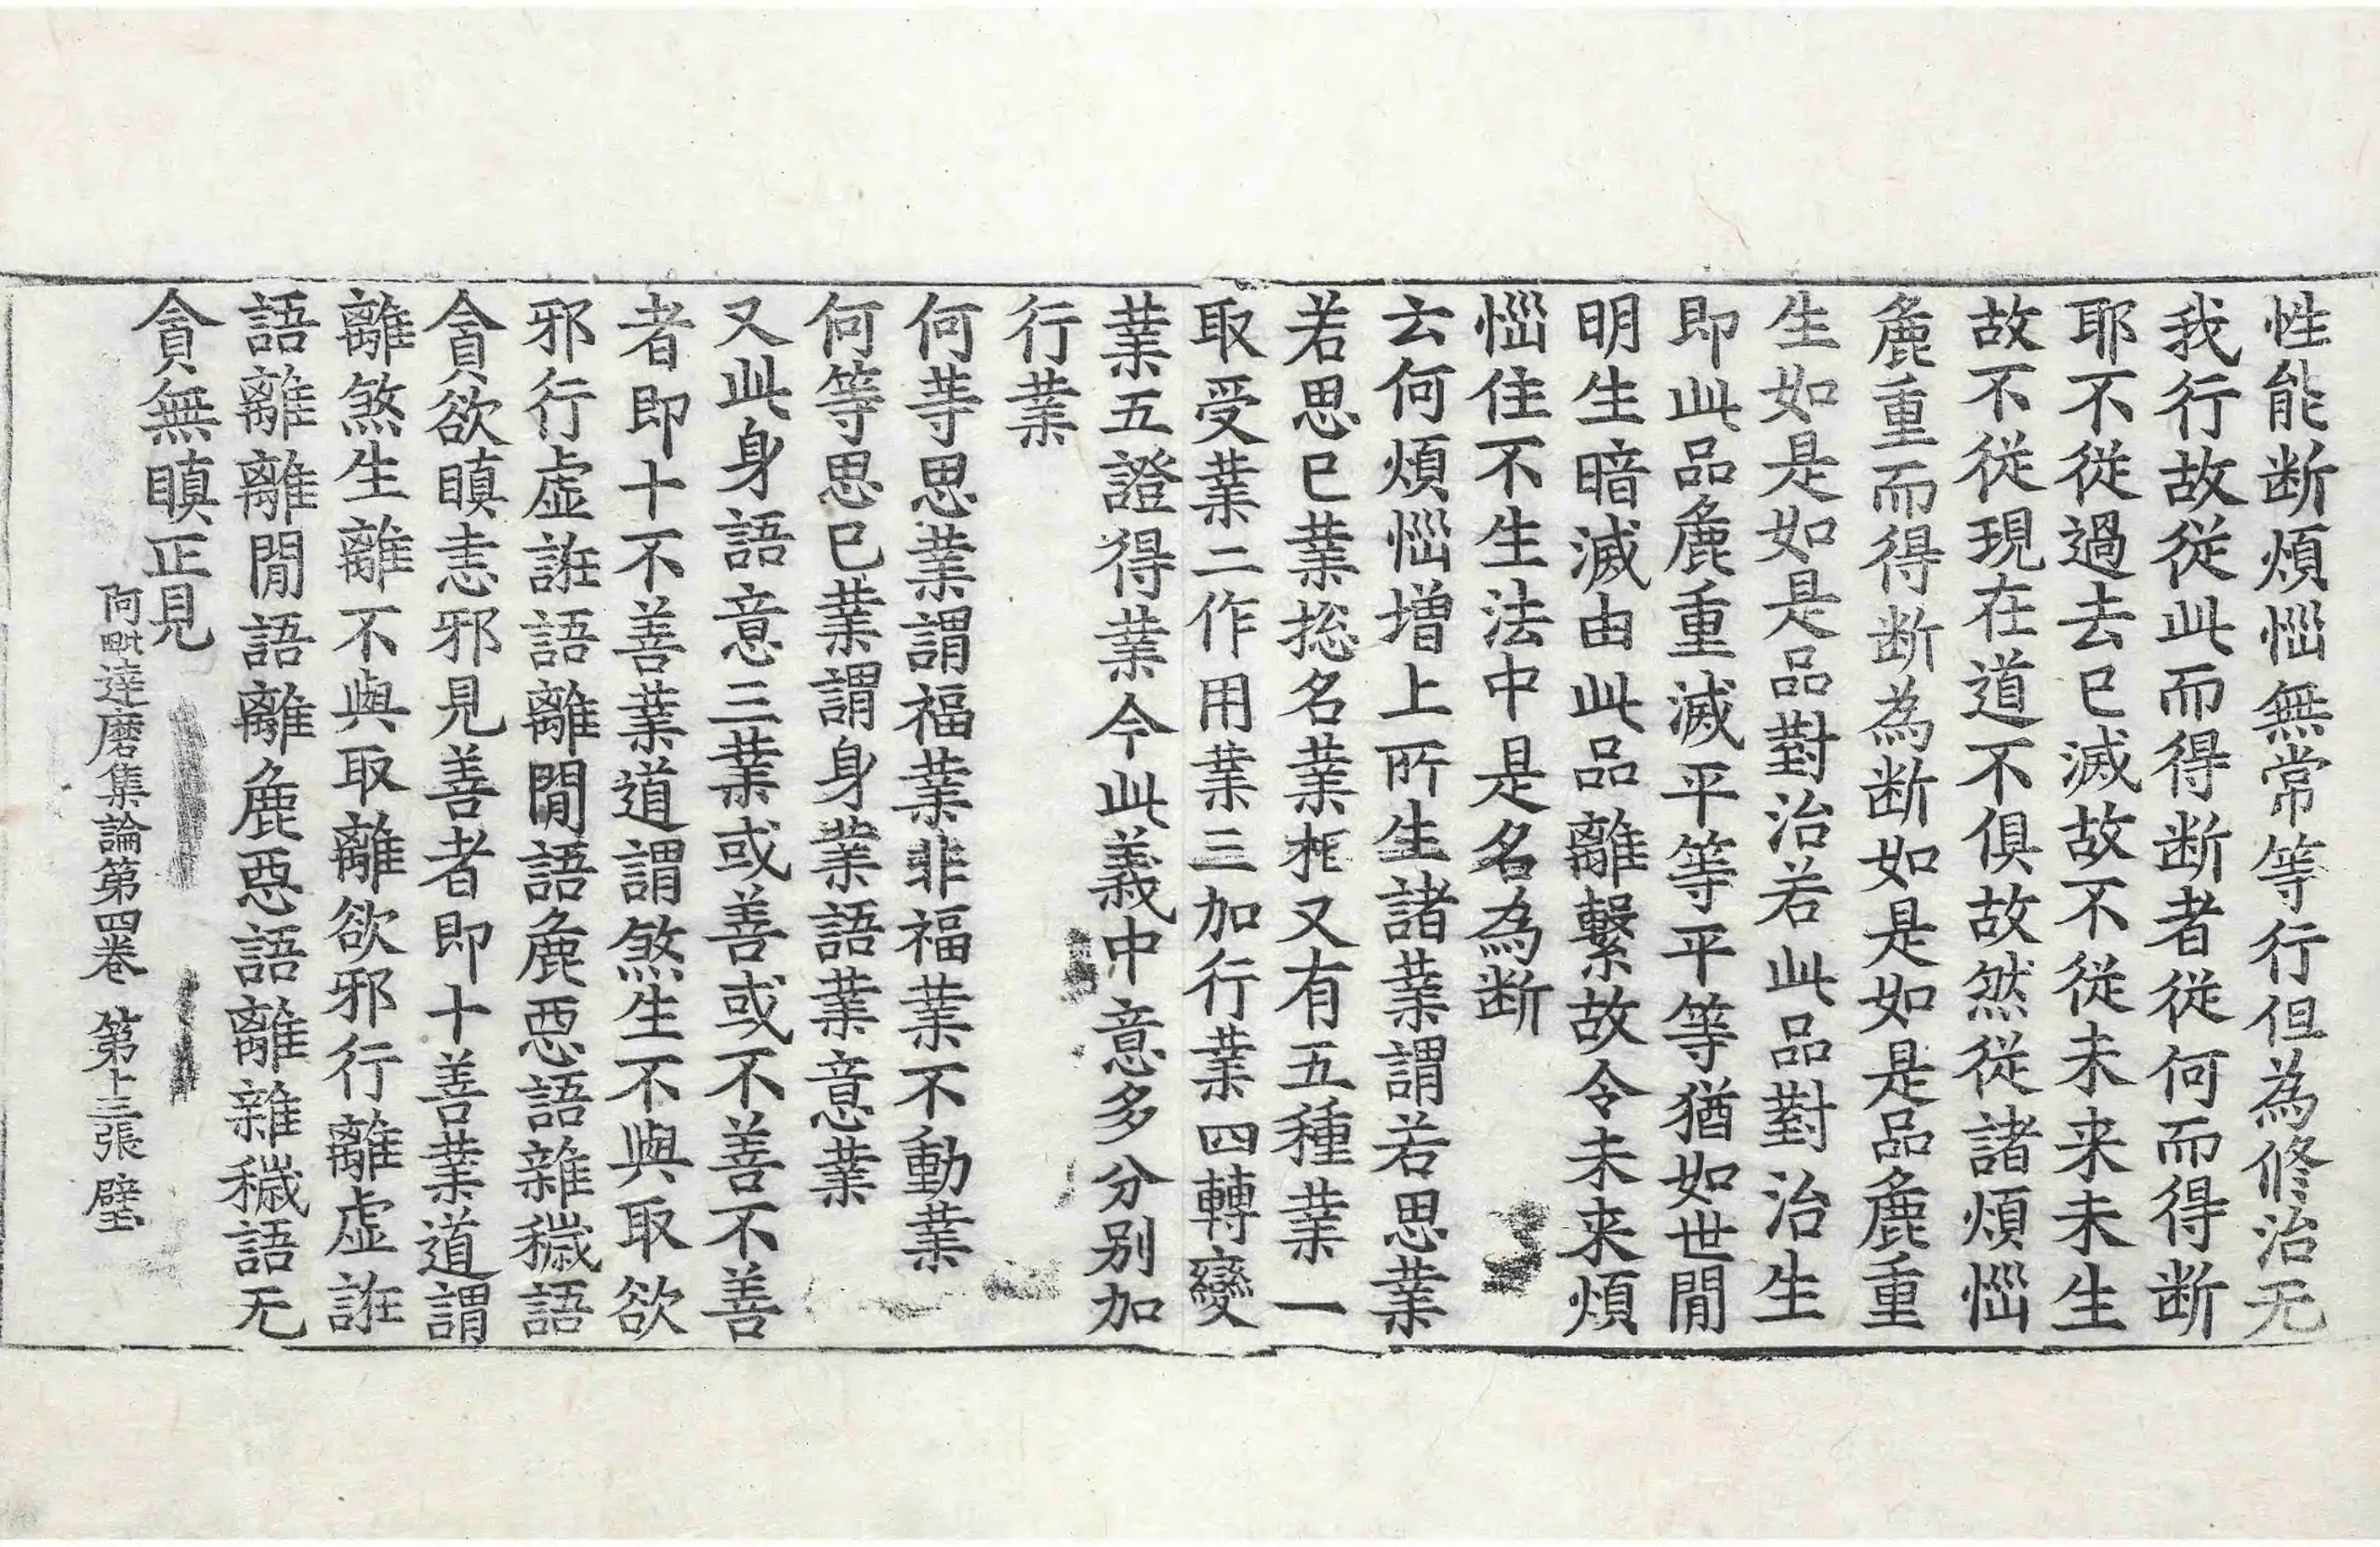 性能断煩惱無常等行但為修治无
我行故從此而得断者從何而得断
耶不從過去已滅故不從未来未生
故不從現在道不俱故然從諸煩惱
麁重而得断為断如是如是品麁重
生如是如是品對治若此品對治生
即此品麁重滅平等平等猶如世間
明生暗滅由此品離繫故令未来煩
惱住不生法中是名為断
云何煩惱增上所生諸業謂若思業
若思已業捴名業相又有五種業一
取受業二作用業三加行業四轉變
業五證得業今此義中意多分別加
行業
何等思業謂福業非福業不動業
何等思已業謂身業語業意業
又此身語意三業或善或不善不善
者即十不善業道謂煞生不與取欲
邪行虛誑語離間語麁惡語雜穢語
貪欲瞋恚邪見善者即十善業道謂
離煞生離不與取離欲邪行離虛誑
語離離間語離麁惡語離雜穢語无
貪無瞋正見
阿毗達磨集論第四卷 第十三張 璧